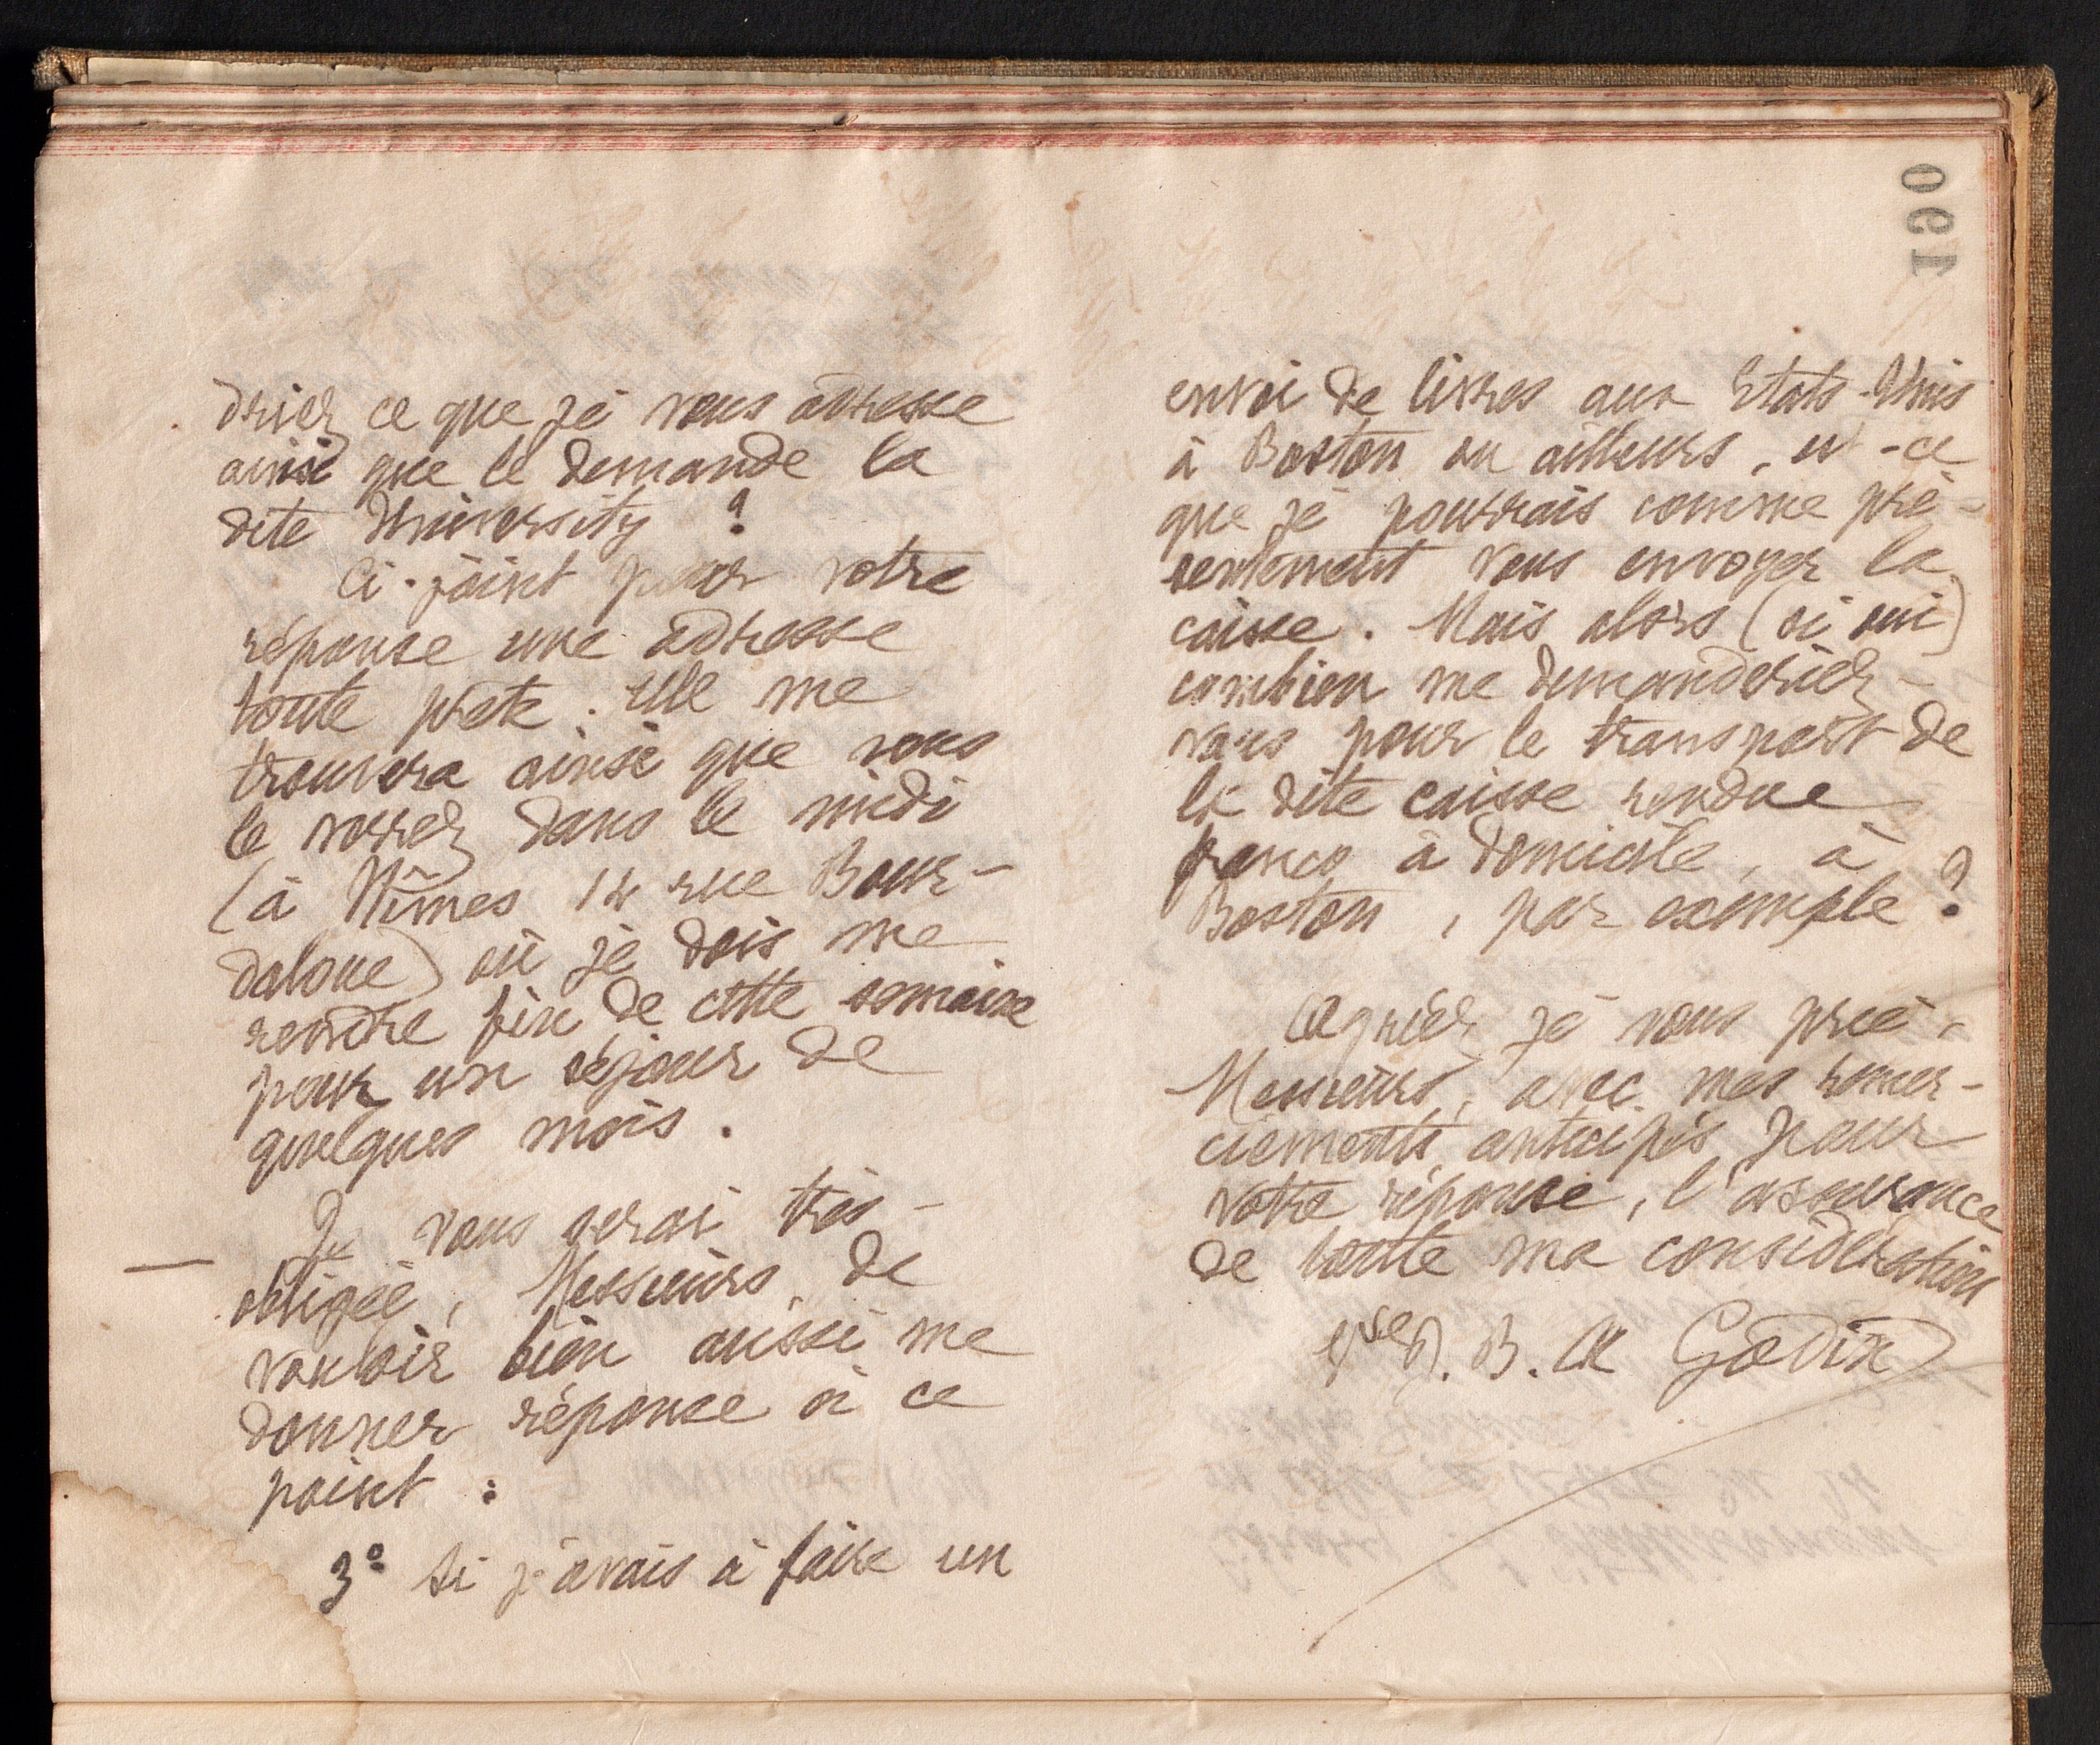 driez ce que je vous adresse
ainsi que le demande la
dite University ?
Ci-joint pour votre
réponse une adresse
toute prête. Elle me
trouvera ainsi que vous
le verrez dans le midi
(à Nîmes 14 rue Bour-
daloue) où je dois me
rendre fin de cette semaine
pour un séjour de
quelques mois.
Je vous serai très-
obligée, Messieurs, de
vouloir bien aussi me
donner réponse à ce
point :
3° Si j'avais à faire un
190
envoi de livres aux Etats-Unis
à Boston ou ailleurs, est-ce
que je pourrais comme pré-
sentement vous envoyer la
caisse. Mais alors (si oui)
combien me demanderiez-
vous pour le transport de
la dite caisse rendue
franco à domicile, à
Boston, par exemple ?
Agréez je vous prie,
Messieurs, avec mes remer-
ciements anticipés pour
votre réponse, l'assurance
de toute ma considération
Vve J. B. A Godin